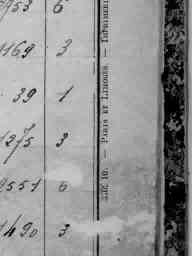 953 6
1169 3
39 1
1275 3
9551 6
1490 3
RUE 10. — PARIS ET LIMOGES. — IMPRIMERI